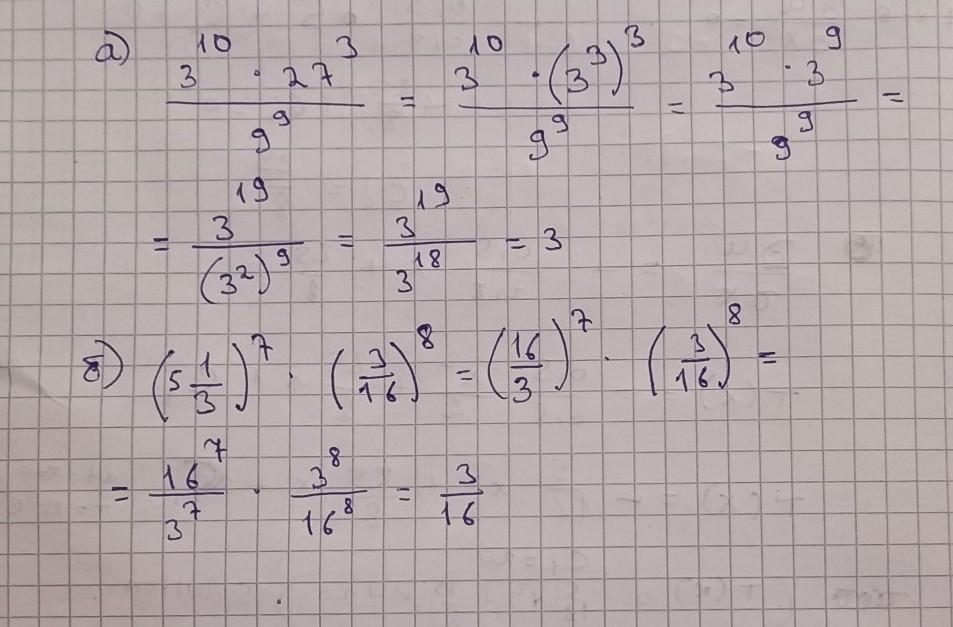 а) (3^10 · 27^3)/(9^9) = (3^10 · (3^3)^3)/(9^9) = (3^10 · 3^9)/(9^9) =
= (3^19)/((3^2)^9) = (3^19)/(3^18) = 3
б) (5 1/3)^7 · (3/16)^8 = (16/3)^7 · (3/16)^8 =
= (16^7)/(3^7) · (3^8)/(16^8) = 3/16